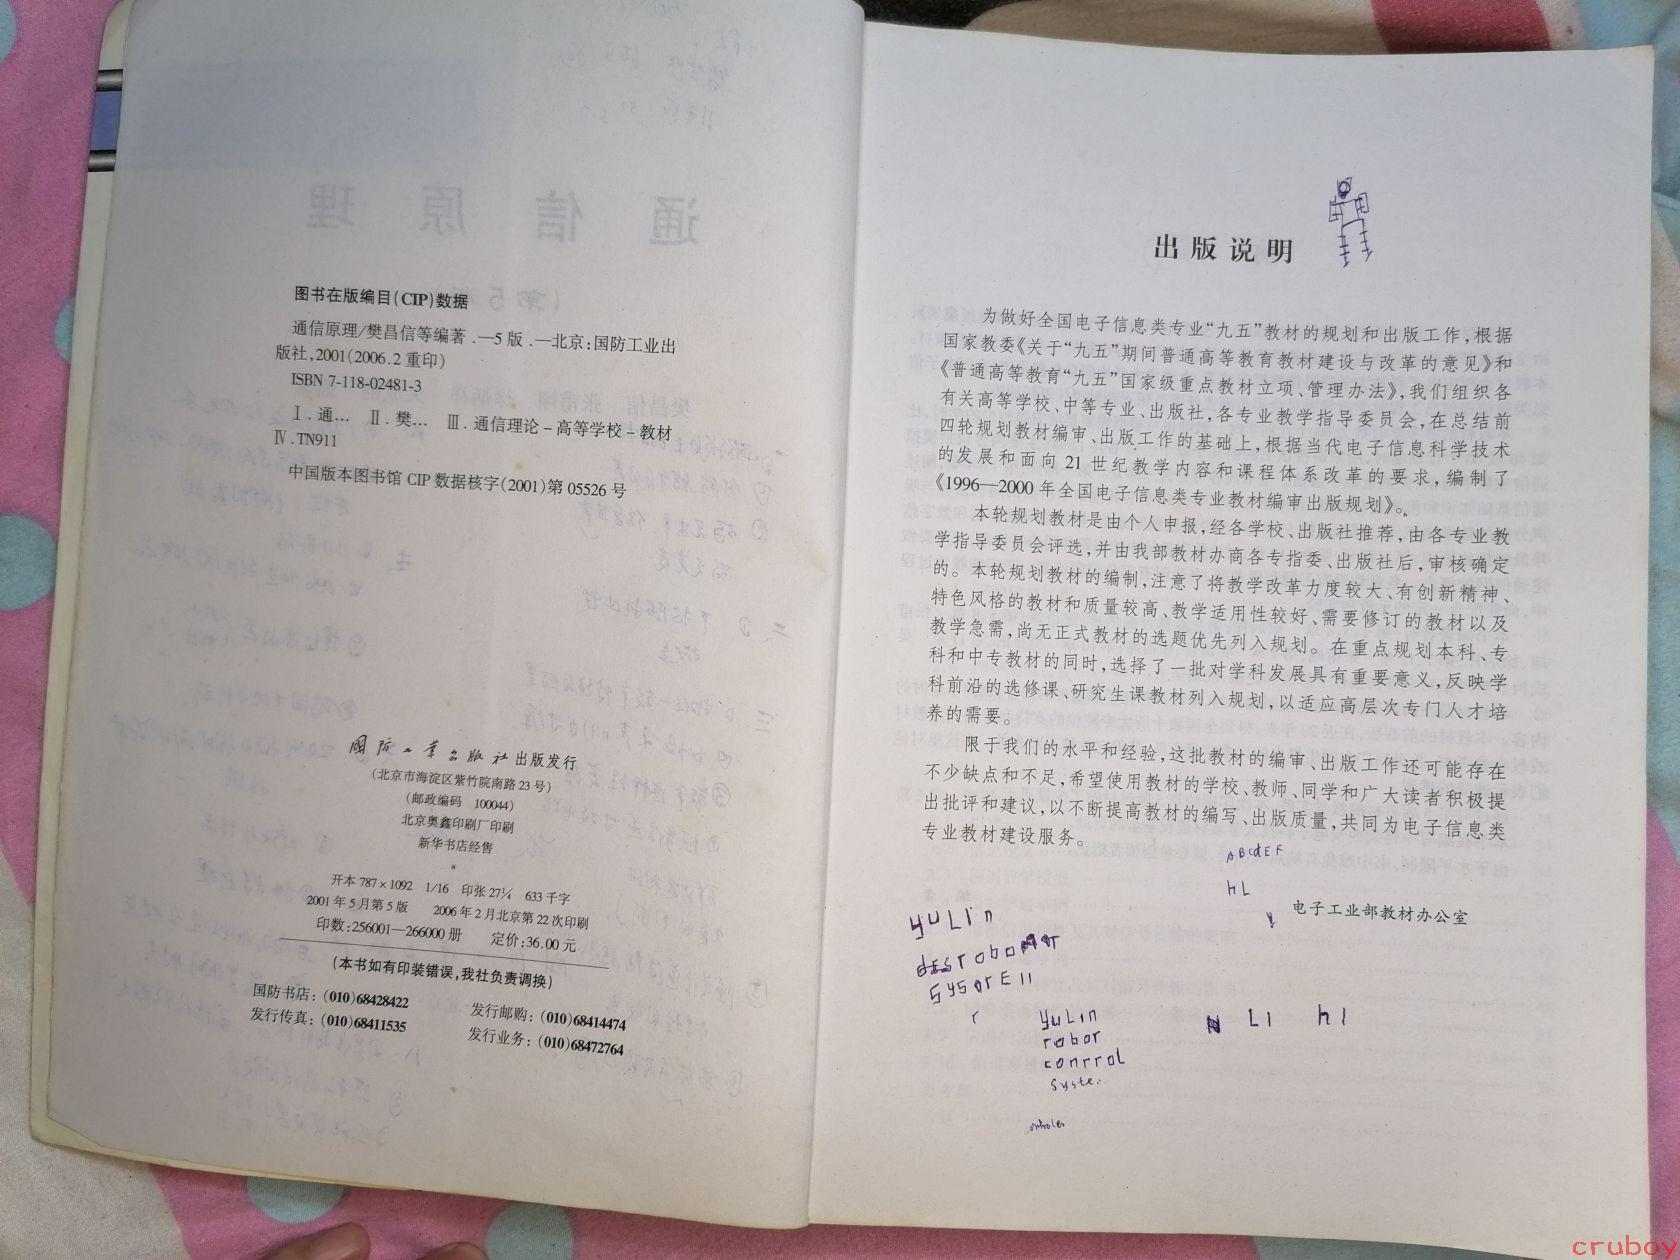 图书在版编目(CIP)数据
通信原理/樊昌信等编著.—5版.—北京:国防工业出
版社,2001(2006.2重印)
ISBN 7-118-02481-3
Ⅰ.通… Ⅱ.樊… Ⅲ.通信理论-高等学校-教材
Ⅳ.TN911
中国版本图书馆CIP数据核字(2001)第05526号
国防工业出版社出版发行
(北京市海淀区紫竹院南路23号)
(邮政编码 100044)
北京奥鑫印刷厂印刷
新华书店经售
*
开本787×1092 1/16 印张27¼ 633千字
2001年5月第5版 2006年2月北京第22次印刷
印数:256001—266000册 定价:36.00元
(本书如有印装错误,我社负责调换)
国防书店:(010)68428422 发行邮购:(010)68414474
发行传真:(010)68411535 发行业务:(010)68472764
出版说明
为做好全国电子信息类专业“九五”教材的规划和出版工作,根据
国家教委《关于“九五”期间普通高等教育教材建设与改革的意见》和
《普通高等教育“九五”国家级重点教材立项、管理办法》,我们组织各
有关高等学校、中等专业、出版社,各专业教学指导委员会,在总结前
四轮规划教材编审、出版工作的基础上,根据当代电子信息科学技术
的发展和面向21世纪教学内容和课程体系改革的要求,编制了
《1996—2000年全国电子信息类专业教材编审出版规划》。
本轮规划教材是由个人申报,经各学校、出版社推荐,由各专业教
学指导委员会评选,并由我部教材办商各专指委、出版社后,审核确定
的。本轮规划教材的编制,注意了将教学改革力度较大、有创新精神、
特色风格的教材和质量较高、教学适用性较好、需要修订的教材以及
教学急需,尚无正式教材的选题优先列入规划。在重点规划本科、专
科和中专教材的同时,选择了一批对学科发展具有重要意义,反映学
科前沿的选修课、研究生课教材列入规划,以适应高层次专门人才培
养的需要。
限于我们的水平和经验,这批教材的编审、出版工作还可能存在
不少缺点和不足,希望使用教材的学校、教师、同学和广大读者积极提
出批评和建议,以不断提高教材的编写、出版质量,共同为电子信息类
专业教材建设服务。
ABCdEF
hL
电子工业部教材办公室
yuLin
yuLin
robor
conrroL
Syste.
LI hI
cruboy